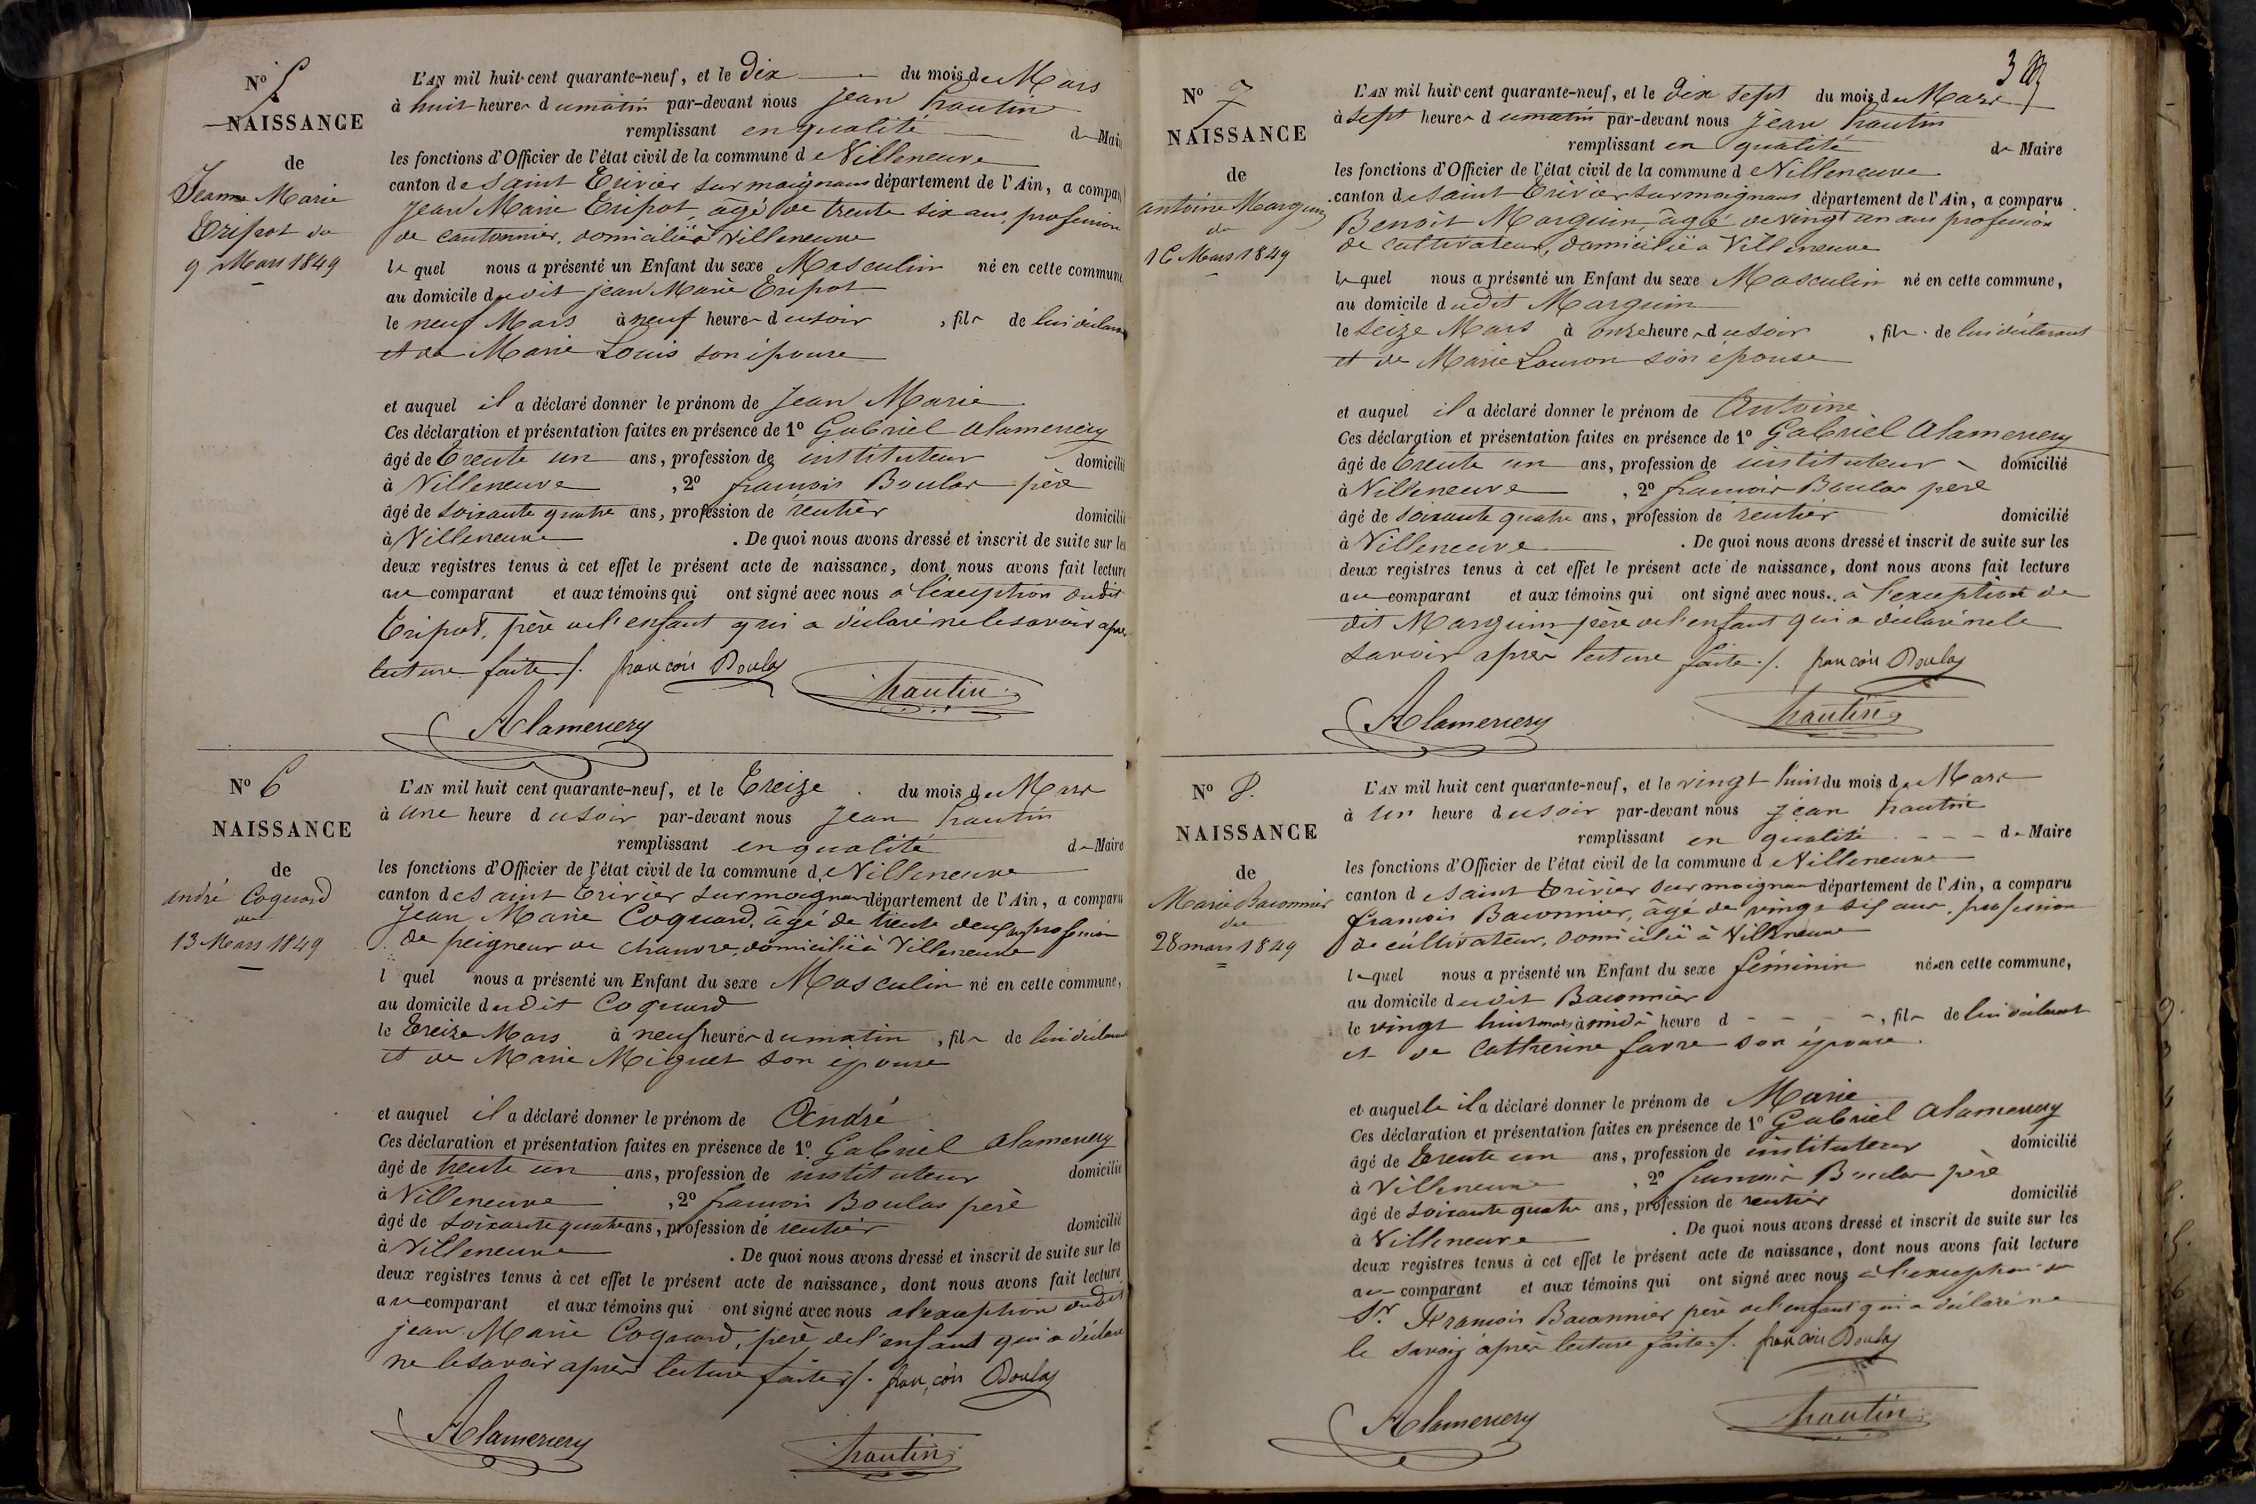 N° 5
NAISSANCE
de
Jean Marie
Tripot du
9 Mars 1849
L'AN mil huit cent quarante-neuf, et le Dix du mois de Mars
à huit heures du matin par-devant nous Jean
remplissant en qualité de Maire
les fonctions d'Officier de l'état civil de la commune de Villeneuve
canton de Saint Trivier sur moignans département de l'Ain, a comparu
Jean Marie Tripot, âgé de trente six ans, profession
de cantonnier, domicilié à Villeneuve
lequel nous a présenté un Enfant du sexe Masculin né en cette commune
au domicile dudit jean Marie Tripot
le neuf Mars à neuf heures du soir, fils de lui déclarant
et de Marie Louis son épouse
et auquel il a déclaré donner le prénom de Jean Marie
Ces déclaration et présentation faites en présence de 1° Gabriel Alamercery
âgé de Trente un ans, profession de instituteur domicilié
à Villeneuve, 2° francois Boulas père
âgé de soixante quatre ans, profession de rentier domicilié
à Villeneuve. De quoi nous avons dressé et inscrit de suite sur les
deux registres tenus à cet effet le présent acte de naissance, dont nous avons fait lecture
au comparant et aux témoins qui ont signé avec nous à l'exception dudit
Tripot, père de l'enfant qui a déclaré ne le savoir après
lecture faite /. françois Boulas
Alamercery
N° 6
NAISSANCE
de
andré Coquard
du
13 Mars 1849
L'AN mil huit cent quarante-neuf, et le Treize du mois de Mars
à une heure du soir par-devant nous Jean
remplissant en qualité de Maire
les fonctions d'Officier de l'état civil de la commune de Villeneuve
canton de Saint Trivier sur moignans département de l'Ain, a comparu
Jean Marie Coquard, âgé de trente deux ans profession
de peigneur de chanvre, domicilié à Villeneuve
l quel nous a présenté un Enfant du sexe Masculin né en cette commune,
au domicile dudit Coquard
le Treize Mars à neuf heures du matin, fils de lui déclarant
et de Marie Miguet son épouse
et auquel il a déclaré donner le prénom de André
Ces déclaration et présentation faites en présence de 1° Gabriel Alamercery
âgé de trente un ans, profession de instituteur domicilié
à Villeneuve, 2° francois Boulas père
âgé de soixante quatre ans, profession de rentier domicilié
à Villeneuve. De quoi nous avons dressé et inscrit de suite sur les
deux registres tenus à cet effet le présent acte de naissance, dont nous avons fait lecture
au comparant et aux témoins qui ont signé avec nous a l'exception dudit
jean Marie Coquard, père de l'enfant qui a déclaré
ne le savoir après lecture faite /. françois Boulas
Alamercery
3
N° 7
NAISSANCE
de
antoine Marguin
du
16 Mars 1849
L'AN mil huit cent quarante-neuf, et le Dix sept du mois de Mars
à sept heures du matin par-devant nous Jean
remplissant en qualité de Maire
les fonctions d'Officier de l'état civil de la commune de Villeneuve
canton de Saint Trivier sur moignans département de l'Ain, a comparu
Benoit Marguin, âgé de vingt un ans profession
de cultivateur, domicilié a Villeneuve
lequel nous a présenté un Enfant du sexe Masculin né en cette commune,
au domicile dudit Marguin
le seize Mars à onze heures du soir, fils de lui déclarant
et de Marie Louron son épouse
et auquel il a déclaré donner le prénom de Antoine
Ces déclaration et présentation faites en présence de 1° Gabriel Alamercery
âgé de Trente un ans, profession de instituteur domicilié
à Villeneuve, 2° francois Boulas père
âgé de soixante quatre ans, profession de rentier domicilié
à Villeneuve. De quoi nous avons dressé et inscrit de suite sur les
deux registres tenus à cet effet le présent acte de naissance, dont nous avons fait lecture
au comparant et aux témoins qui ont signé avec nous. à l'exception du
dit Marguin père de l'enfant qui a déclaré ne le
savoir après lecture faite /. françois Boulas
Alamercery
N° 8.
NAISSANCE
de
Marie Baconnier
du
28 mars 1849
L'AN mil huit cent quarante-neuf, et le vingt huit du mois de Mars
à un heure du soir par-devant nous Jean
remplissant en qualité de Maire
les fonctions d'Officier de l'état civil de la commune de Villeneuve
canton de Saint Trivier sur moignans département de l'Ain, a comparu
francois Baconnier, âgé de vingt six ans profession
de cultivateur, domicilié à Villeneuve
lequel nous a présenté un Enfant du sexe féminin née en cette commune,
au domicile dudit Baconnier
le vingt huit mars à midi heure d, fille de lui déclarant
et de Catherine favre son épouse.
et auquelle il a déclaré donner le prénom de Marie
Ces déclaration et présentation faites en présence de 1° Gabriel Alamercery
âgé de Trente un ans, profession de instituteur domicilié
à Villeneuve, 2° francois Boulas père
âgé de soixante quatre ans, profession de rentier domicilié
à Villeneuve. De quoi nous avons dressé et inscrit de suite sur les
deux registres tenus à cet effet le présent acte de naissance, dont nous avons fait lecture
au comparant et aux témoins qui ont signé avec nous à l'exception du
Sr. Francois Baconnier père de l'enfant qui a déclaré ne
le savoir après lecture faite /. françois Boulas
Alamercery